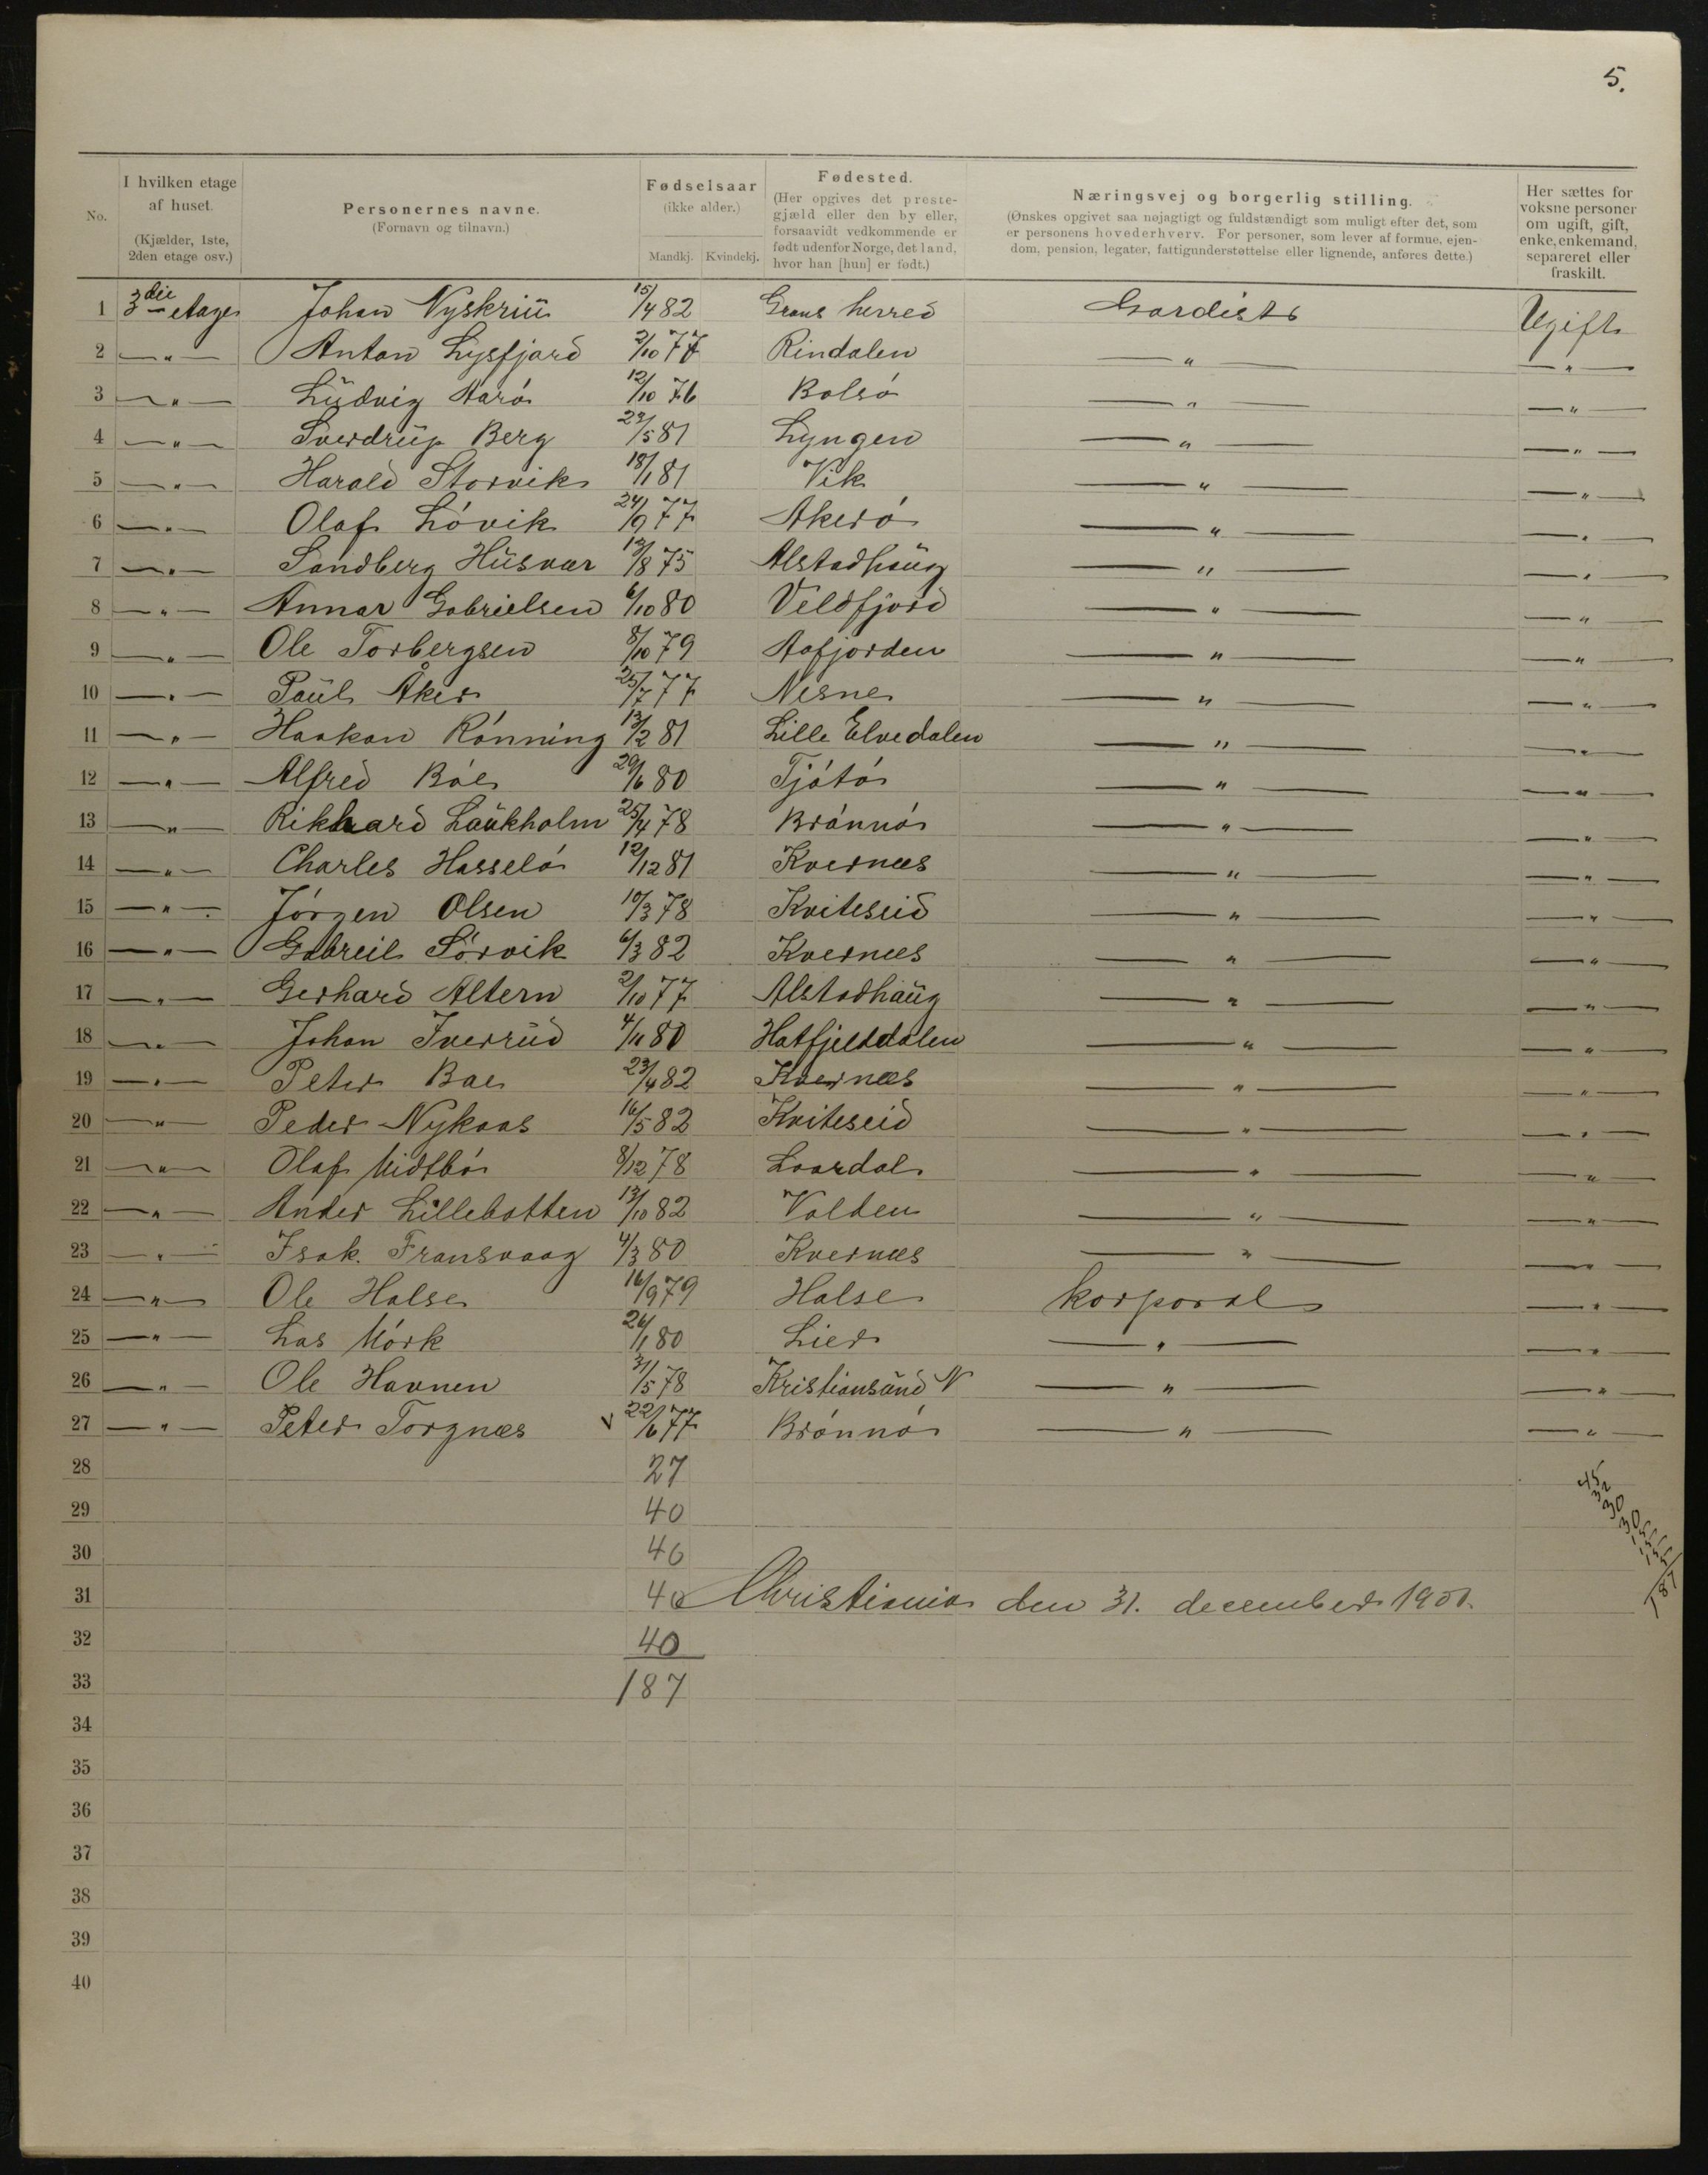 5.
No.
I hvilken etage af huset.
(Kjælder, 1ste, 2den etage osv.)
Personernes navne.
(Fornavn og tilnavn.)
Fødselsaar
(ikke alder.)
Mandkj. Kvindekj.
Fødested.
(Her opgives det prestegjæld eller den by eller, forsaavidt vedkommende er født udenfor Norge, det land, hvor han [hun] er født.)
Næringsvej og borgerlig stilling.
(Ønskes opgivet saa nøjagtigt og fuldstændigt som muligt efter det, som er personens hovederhverv. For personer, som lever af formue, ejendom, pension, legater, fattigunderstøttelse eller lignende, anføres dette.)
Her sættes for voksne personer om ugift, gift, enke, enkemand, separeret eller fraskilt.
1 3die etage Johan Nyskriü 15/4 82 Grans herred Gardist Ugift
2 —„— Anton Lysfjord 2/10 77 Rindalen —„— —„—
3 —„— Lüdvig Harö 12/10 76 Bolsö —„— —„—
4 —„— Sverdrüp Berg 23/5 81 Lyngen —„— —„—
5 —„— Harald Storvik 18/1 81 Vik —„— —„—
6 —„— Olaf Lövik 24/9 77 Akerö —„— —„—
7 —„— Sandberg Hüsvær 13/8 75 Alstadhaüg —„— —„—
8 —„— Annar Gabrielsen 6/10 80 Velfjord —„— —„—
9 —„— Ole Torbergsen 8/10 79 Aafjorden —„— —„—
10 —„— Paül Åker 25/7 77 Nesne —„— —„—
11 —„— Haakon Rönning 13/2 81 Lille Elvedalen —„— —„—
12 —„— Alfred Böe 29/6 80 Tjötö —„— —„—
13 —„— Rikhard Laükholm 25/4 78 Brönnö —„— —„—
14 —„— Charles Hasselö 12/12 81 Kvernæs —„— —„—
15 —„— Jörgen Olsen 10/3 78 Kviteseid —„— —„—
16 —„— Gabreil Sörvik 6/3 82 Kvernæs —„— —„—
17 —„— Gerhard Altern 2/10 77 Alstadhaüg —„— —„—
18 —„— Johan Iverrüd 4/11 80 Hatfjelddalen —„— —„—
19 —„— Peter Bae 23/4 82 Kvernæs —„— —„—
20 —„— Peder Nykaas 16/5 82 Kviteseid —„— —„—
21 —„— Olaf Midtbö 8/12 78 Laardal —„— —„—
22 —„— Ander Lillebotten 13/10 82 Volden —„— —„—
23 —„— Isak. Fransvaag 4/3 80 Kvernæs —„— —„—
24 —„— Ole Halse 16/9 79 Halse korporal —„—
25 —„— Las Mörk 26/1 80 Lier —„— —„—
26 —„— Ole Havnen 31/5 78 Kristiansünd N —„— —„—
27 —„— Peter Torgnæs v 22/6 77 Brönnö —„— —„—
28 27
29 40
30 40
31 40 Christiania den 31. december 1900.
32 40
33 187
34
35
36
37
38
39
40
45
32
30
30
187